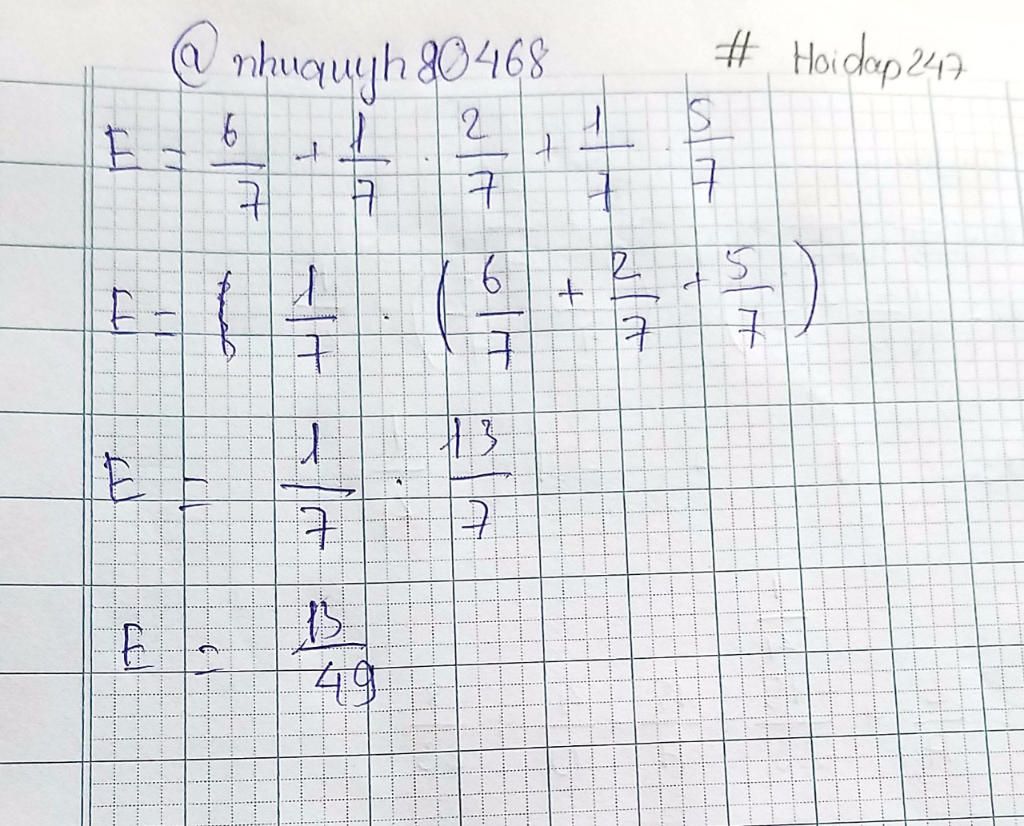 @nhuquyh80468 # Hoidap247
E = 6/7 + 1/7 . 2/7 + 1/7 . 5/7
E = 1/7 . (6/7 + 2/7 + 5/7)
E = 1/7 . 13/7
E = 13/49